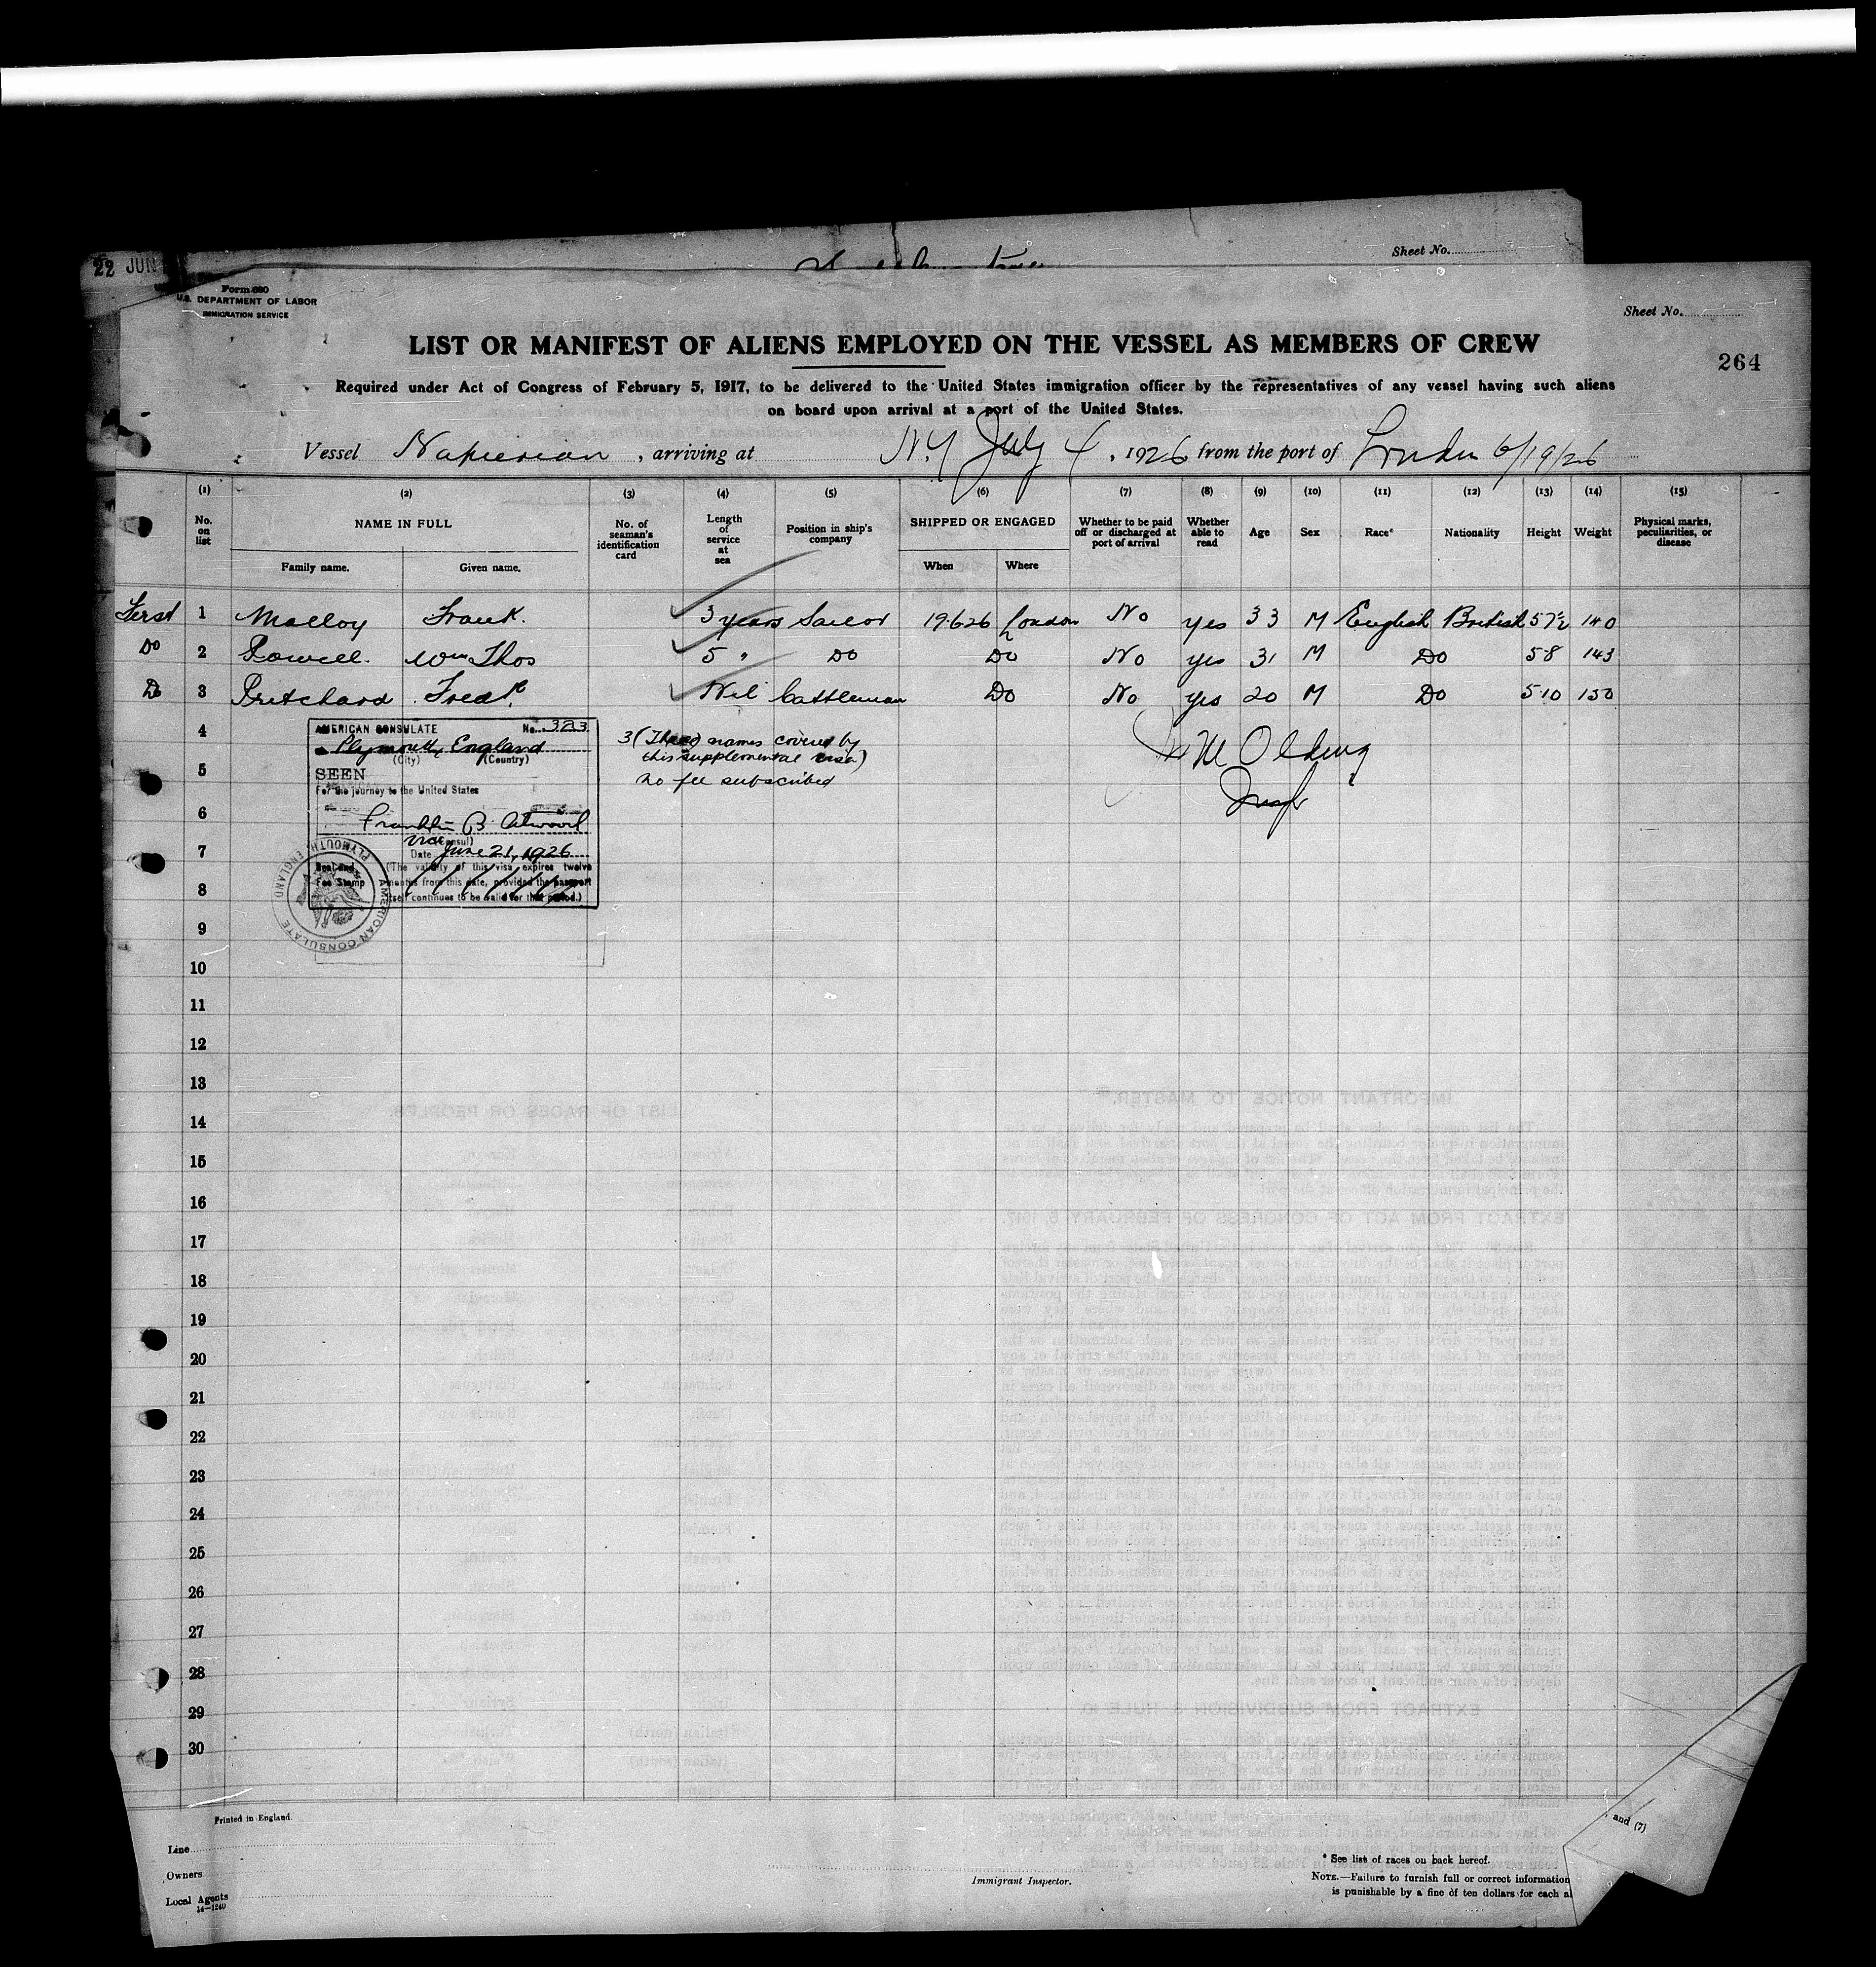 Sheet No.
22 JUN
Form 680
U.S. DEPARTMENT OF LABOR
IMMIGRATION SERVICE
Sheet No.
LIST OR MANIFEST OF ALIENS EMPLOYED ON THE VESSEL AS MEMBERS OF CREW
264
Required under Act of Congress of February 5, 1917, to be delivered to the United States immigration officer by the representatives of any vessel having such aliens
on board upon arrival at a port of the United States.
Vessel Napierian, arriving at N.Y July 4, 1926 from the port of London 6/19/26
(1) (2) (3) (4) (5) (6) (7) (8) (9) (10) (11) (12) (13) (14) (15)
No. on list NAME IN FULL No. of seaman's identification card Length of service at sea Position in ship's company SHIPPED OR ENGAGED Whether to be paid off or discharged at port of arrival Whether able to read Age Sex Race* Nationality Height Weight Physical marks, peculiarities, or disease
Family name. Given name. When Where
First 1 Malloy Frank. 3 years Sailor 19.6.26 London No yes 33 M English British 5 7½ 140
Do 2 Powell. Wm Thos 5 " Do Do No yes 31 M Do 5 8 143
Do 3 Pritchard Fredk. Nil Cattleman Do No yes 20 M Do 5 10 150
4
5
6
7
8
9
10
11
12
13
14
15
16
17
18
19
20
21
22
23
24
25
26
27
28
29
30
AMERICAN CONSULATE No. 323
Plymouth, England
(City) (Country)
SEEN
For the journey to the United States
Franklin B. Atwood
Vice (Consul)
Date June 21, 1926
Seal and Fee Stamp
(The validity of this visa expires twelve
months from this date, provided the passport
itself continues to be valid for that period.)
AMERICAN CONSULATE PLYMOUTH, ENGLAND
3 (Three) names covered by
this supplemental visa)
no fee subscribed
Printed in England.
Line
Owners
Local Agents
14—1240
Immigrant Inspector.
and (7)
* See list of races on back hereof.
NOTE.—Failure to furnish full or correct information
is punishable by a fine of ten dollars for each a